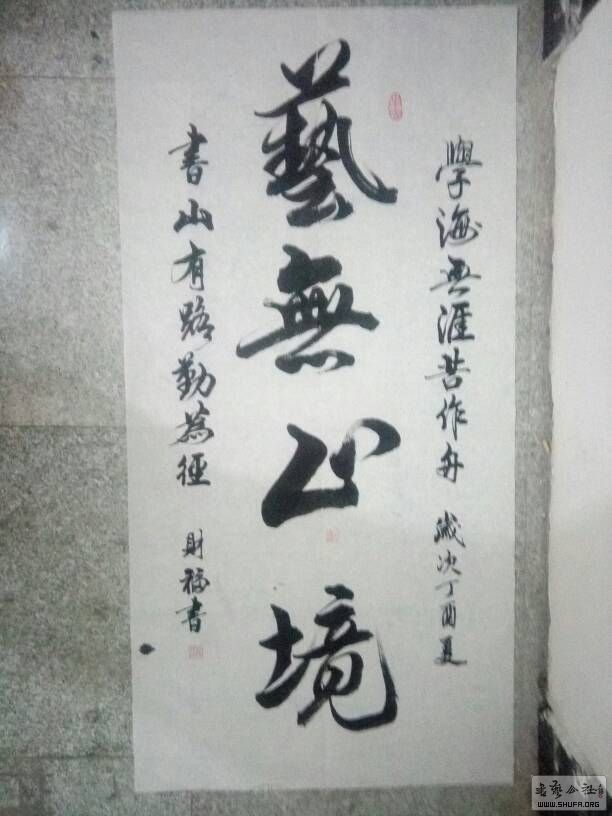 學海無涯苦作舟 歲次丁酉夏
藝無止境
書山有路勤為徑 財福書
書藝公社
WWW.SHUFA.ORG